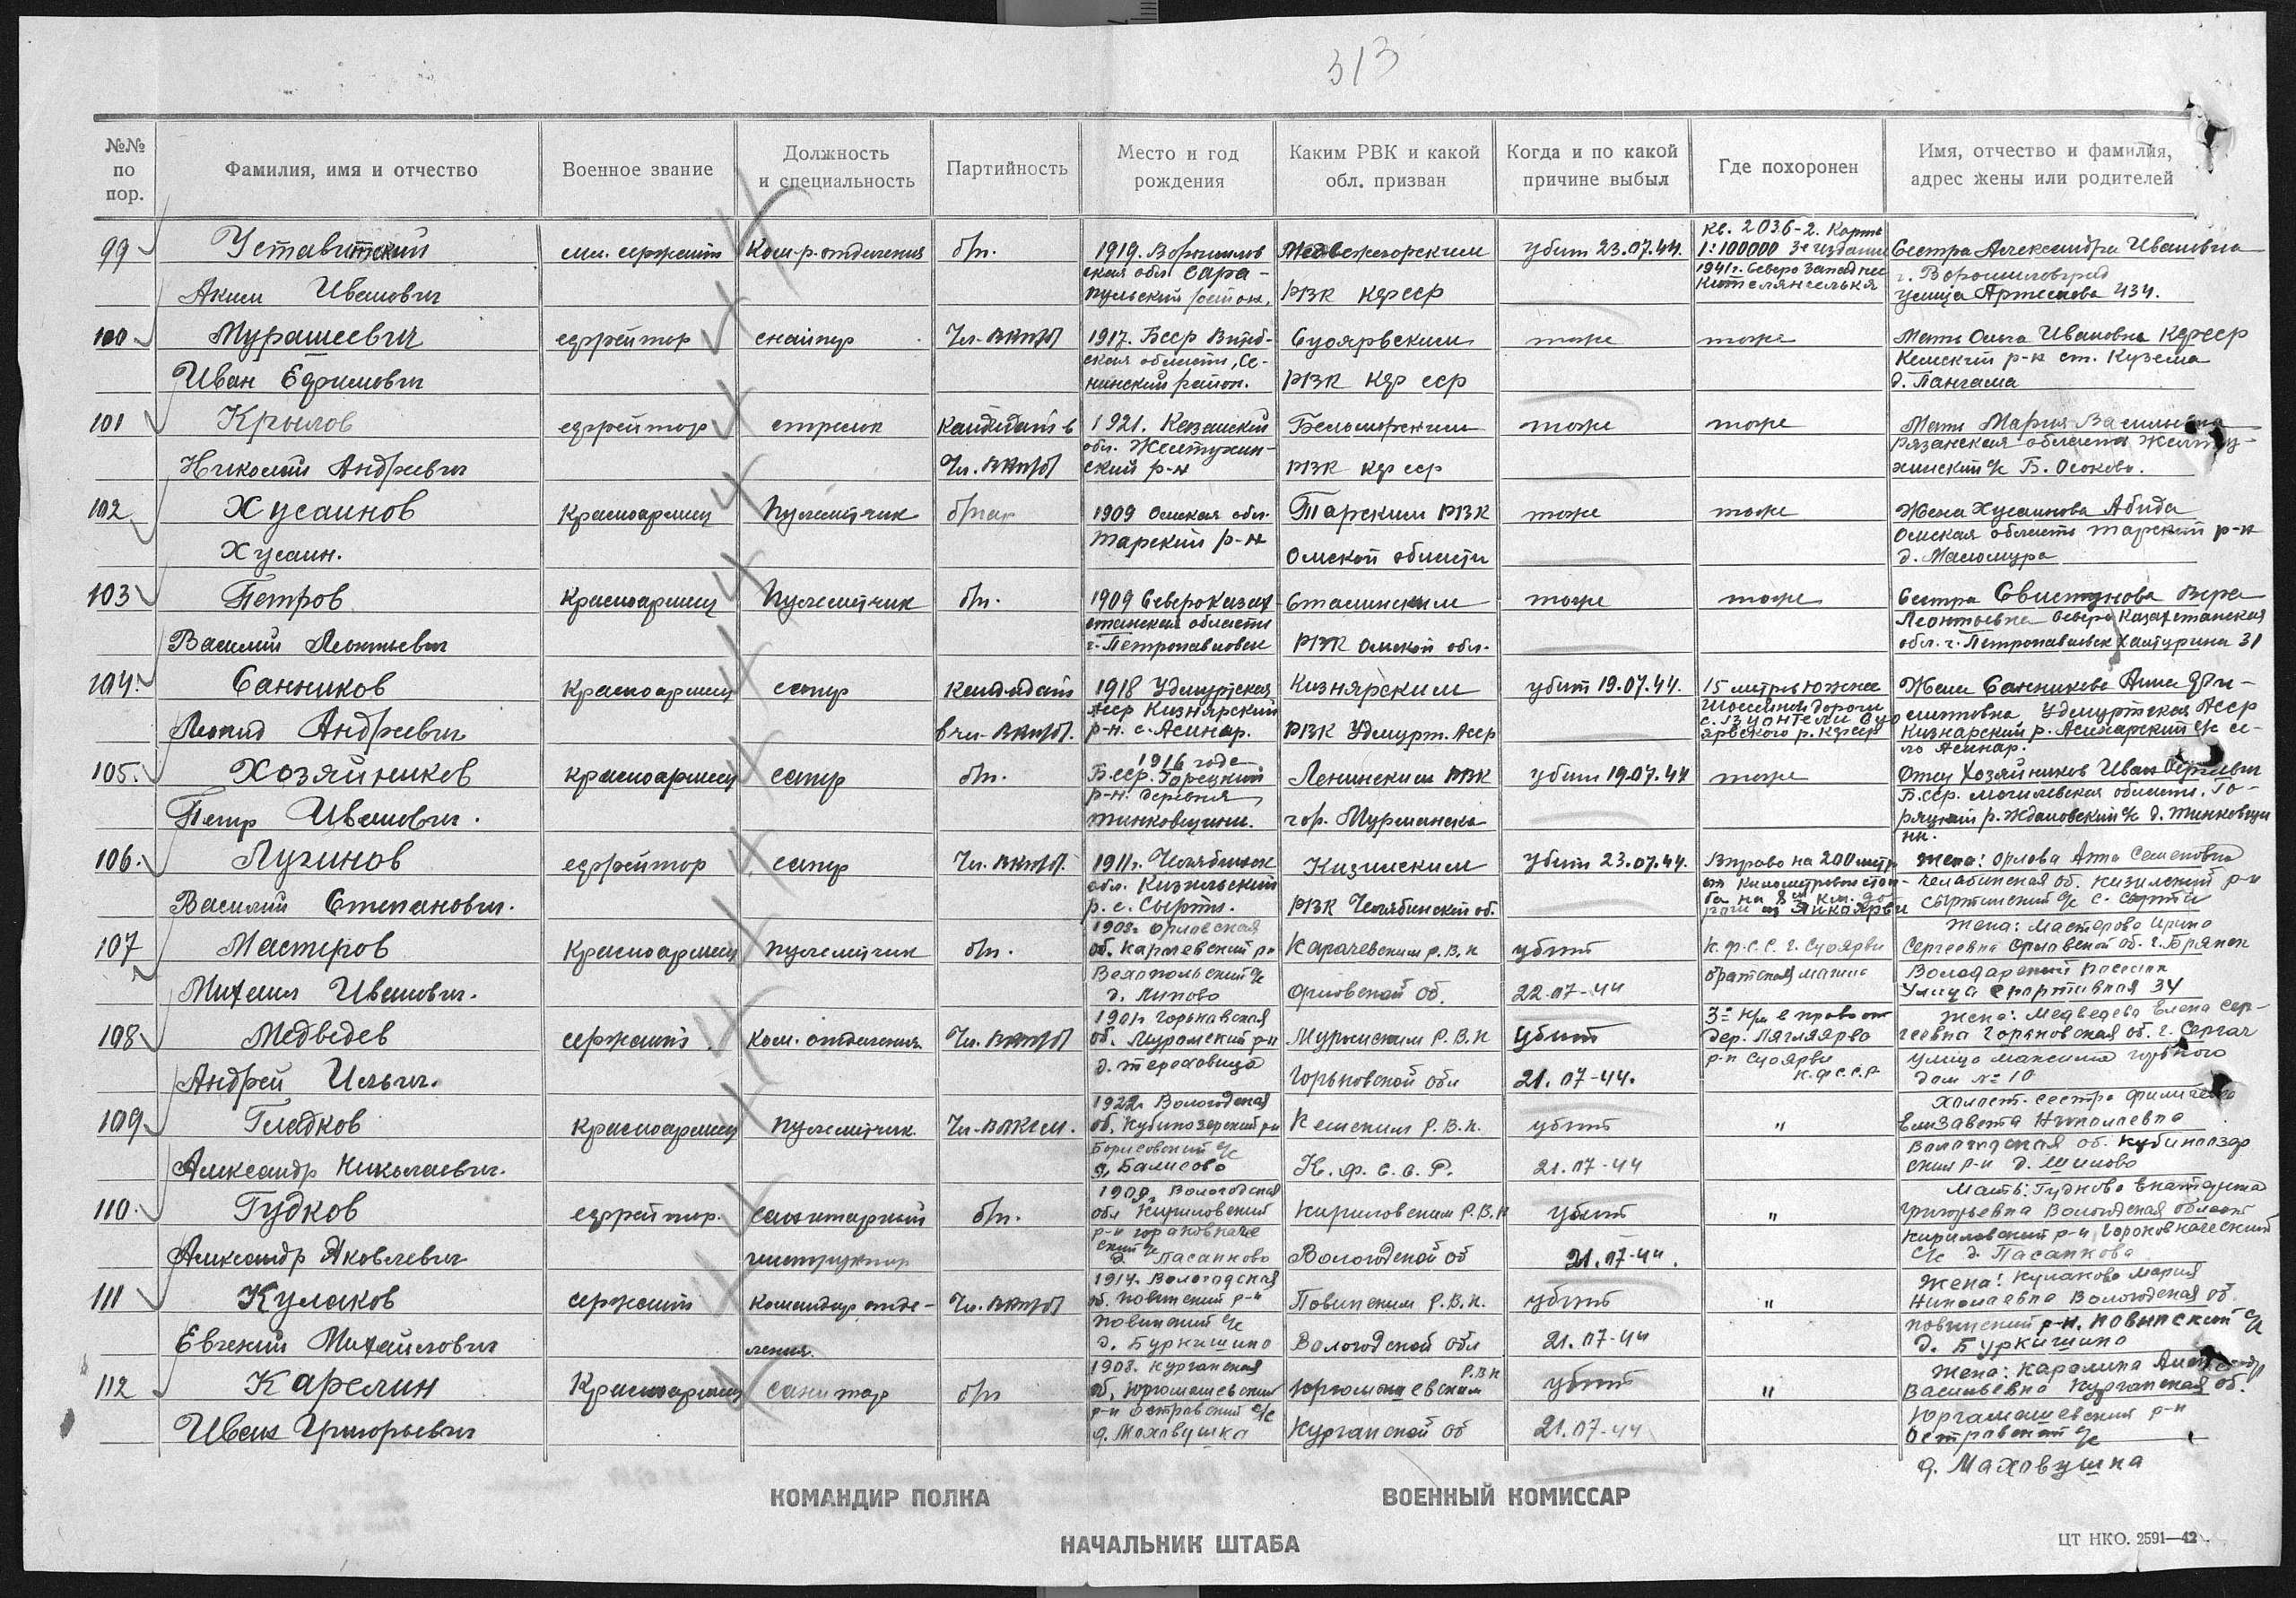 313
№№ по пор. Фамилия, имя и отчество Военное звание Должность и специальность Партийность Место и год рождения Каким РВК и какой обл. призван Когда и по какой причине выбыл Где похоронен Имя, отчество и фамилия, адрес жены или родителей
99 Уставитский мл. сержант Ком-р. отделения б/п. 1919. Ворошилов Медвежегорским убит 23.07.44. кв. 2036-2. Карта 1:100000 3е издание Сестра Александра Ивановна
Аким Иванович ская обл РВК КФССР 1941г. Северо Западнее г. Ворошиловград
улица 434.
100 Мурашевич ефрейтор снайпер Чл. ВКП/б/ 1917. Бсср Витеб- Суоярвским тоже тоже Мать Ольга Ивановна КФССР
Иван Ефимович ская область, Се- РВК КФ ССР Кемский р-н ст. Кузема
нинский район. д. Лангама
101 Крылов ефрейтор стрелок Кандидат в 1921. Беломорским тоже тоже Мать Мария
Николай Андреевич Чл. ВКП/б/ обл. РВК КФ ССР Рязанская область
ский р-н с/с Б.
102 Хусаинов Красноармеец Пулеметчик 1909 Омская обл. Тарским РВК тоже тоже Жена Хусаинова Абида
Хусаин. Тарский р-н Омской области Омская область Тарский р-н
д.
103 Петров Красноармеец Пулеметчик б/п. 1909 СевероКазах Сталинским тоже тоже Сестра Свистунова Вера
Василий Леонтьевич станская область РВК Омской обл. Леонтьевна Северо Казахстанская
г. Петропавловск обл. г. Петропавловск Халтурина 31
104. Санников Красноармеец сапер Кандидат 1918 Удмуртская Кизнярским убит 19.07.44. 15 метров южнее Жена Санникова Анна Фи-
Леонид Андреевич в чл. ВКП/б/. Асср Кизнярский РВК Удмурт. Асср шоссейной дороги липповна Удмуртская Асср
р-н. с. Асинар. ярвского р. КФССР Кизнарский р. Асинарский с/с се-
ло Асинар.
105. Хозяйников красноармеец сапер б/п. 1916 года Ленинским РВК убит 19.07.44 тоже Отец Хозяйников Иван
Петр Иванович. Бсср. Горецкий гор. Мурманска Б.сср. Могилевская область, Го-
р-н. деревня рецкий р. Ждановский с/с д. Тинковщи
Тинковщини. ни.
106. Лугинов ефрейтор сапер Чл. ВКП/б/. 1911г. Челябинск Кизилским убит 23.07.44. Вправо на 200 метр Жена: Орлова Анна Семеновна
Василий Степанович. обл. Кизильский РВК Челябинской об. от километрового стол- Челябинская об. Кизилский р-н
р. с. Сырты. ба на Сыртинский с/с с. Сырти
107 Мастеров Красноармеец пулеметчик б/п. 1903г. Орловская Карачевским Р.В.К убит К.Ф.С.С. г. Суоярви Жена: Мастерова Ирина
Михаил Иванович. об. Карачевский р-н Орловской об. 22.07-44 братская могила Сергеевна Орловской об. г. Брянск
с/с Володарский поселок
д. Липово Улица Спортивная 34
108 Медведев сержант Ком. отделения Чл. ВКП/б/ 1901г. Горьковская Муромским Р.В.К убит 3-й км вправо от Жена: Медведева Елена Сер-
Андрей Ильич. об. Муромский р-н Горьковской обл 21.07-44. дер. Лягляярво геевна Горьковская об. г. Сергач
д. Тероховица р-н Суоярви улица Максима Горького
К.Ф.С.С.Р. дом № 10
109 Гладков Красноармеец пулеметчик. 1922г. Вологодская Кемским Р.В.К. убит " Холост. сестра
Александр Николаевич. об. Кубинозерский р-н К. Ф. С. С. Р. 21.07-44 Елизавета Николаевна
Борисовский с/с Вологодская об. Кубиноозер
д. Балисово ский р-н д. Шилово
110. Гудков ефрейтор. санитарный б/п. 1909. Вологодская Кириловским Р.В.К убит " Мать: Гудкова Екатерина
Александр Яковлевич инструктор обл Кириловский Вологодской об 21.07-44. Григорьевна Вологодская область
р-н Кириловский р-н
ский с/с д. Пасапково с/с д. Пасапково
111 Кулаков сержант командир отде- Чл. ВКП/б/ 1914. Вологодская Повинским Р.В.К. убит " Жена: Кулакова Мария
Евгений Михайлович ления. об. Повинский р-н Вологодской обл 21.07-44 Николаевна Вологодская об.
Повинский с/с повинский р-н. Повинский с/с
д. Буркишино д. Буркишино
112 Карелин Красноармеец санитар б/п 1908. Курганская Юргамышевским Р.В.К убит " Жена: Карелина
Иван Григорьевич об. Юргамышевский Курганской об 21.07-44 Васильевна Курганская об.
р-н Островский с/с Юргамышевский р-н
д. Маховушка Островский с/с
д. Маховушка
КОМАНДИР ПОЛКА ВОЕННЫЙ КОМИССАР
НАЧАЛЬНИК ШТАБА
ЦТ НКО. 2591—42